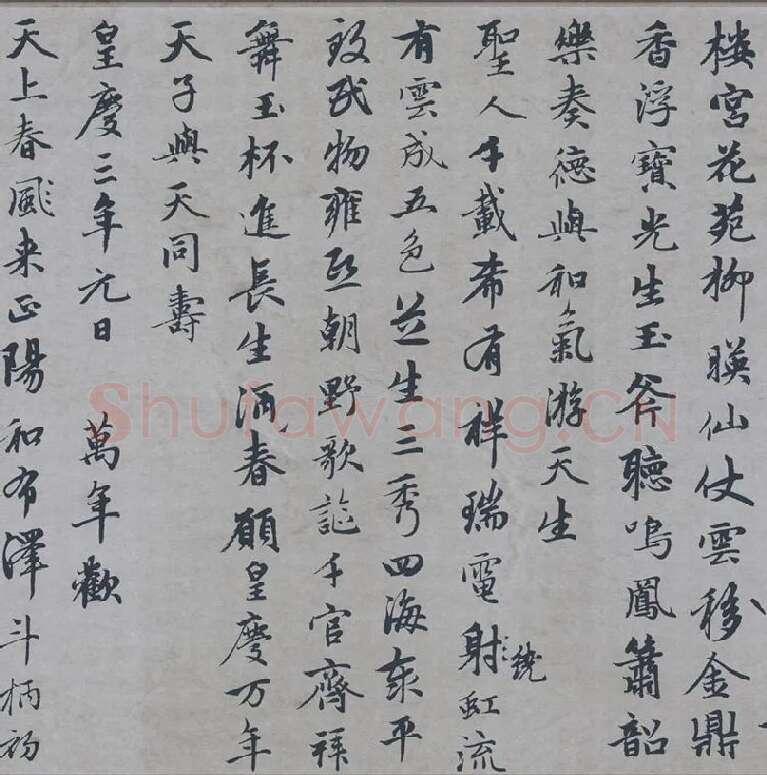 楼宮花苑柳暎仙仗雲移金鼎
香浮寶光生玉斧聽鳴鳳簫韶
樂奏德與和氣游天生
聖人千載希有祥瑞電射虹流
繞
有雲成五色芝生三秀四海泰平
致民物雍熙朝野歌謳千官齊拜
舞玉杯進長生酒春願皇慶万年
天子與天同壽
皇慶三年元日 萬年歡
天上春風来正陽和布澤斗柄初
Shufawang.CN